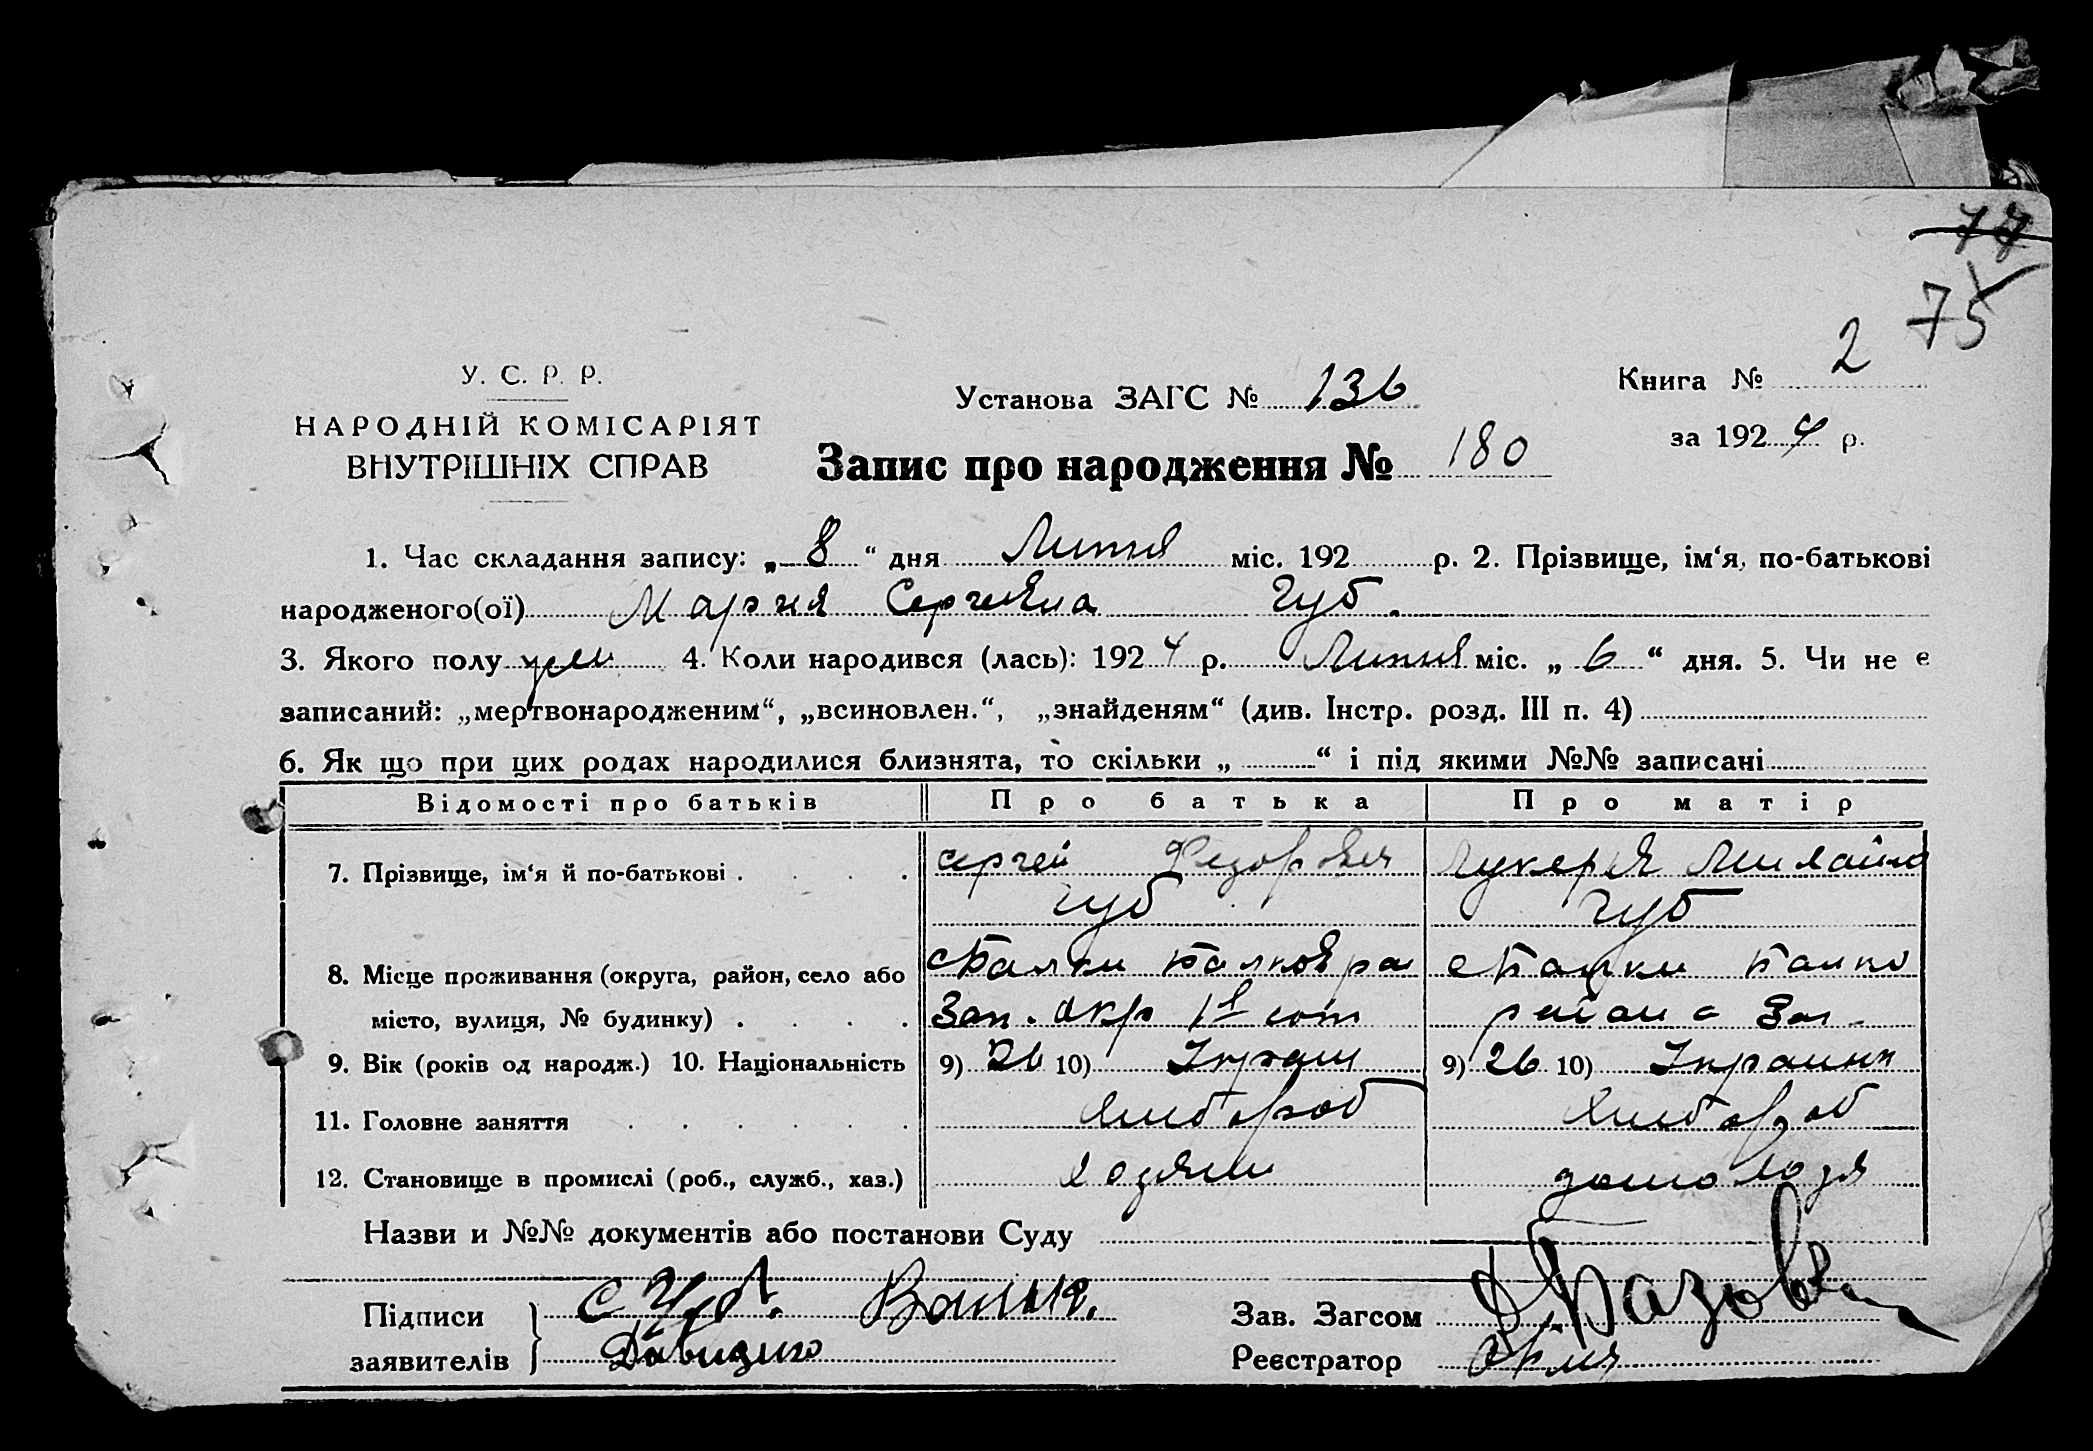 77
75
У. С. Р. Р.
НАРОДНІЙ КОМІСАРІЯТ
ВНУТРІШНІХ СПРАВ
Установа ЗАГС № 136
Книга № 2
за 1924 р.
Запис про народження № 180
1. Час складання запису: „ 8 “ дня Липня міс. 192 р. 2. Прізвище, ім‘я, по-батькові
народженого(ої) Мария Сергиевна Чуб.
3. Якого полу жен 4. Коли народився (лась): 1924 р. Липня міс. „ 6 “ дня. 5. Чи не є
записаний: „мертвонародженим“, „всиновлен.“, „знайденям“ (див. Інстр. розд. III п. 4)
6. Як що при цих родах народилися близнята, то скільки „ “ і під якими №№ записані
Відомості про батьків Про батька Про матір
7. Прізвище, ім‘я й по-батькові . . . . Сергей Федорович Лукерья Михайло
Чуб Чуб
8. Місце проживання (округа, район, село або с Балки Балков ра с Балки Балко
місто, вулиця, № будинку) . . . . Зап. окр 1й сот района Зап.
9. Вік (років од народж.) 10. Національність 9) 26 10) Украин 9) 26 10) Украинк
11. Головне заняття . . . . . . хлебороб хлебороб
12. Становище в промислі (роб., служб., хаз.) хозяин домохозя
Назви и №№ документів або постанови Суду
Підписи
заявителів
С Чуб.
Давиденко
Зав. Загсом
Реєстратор